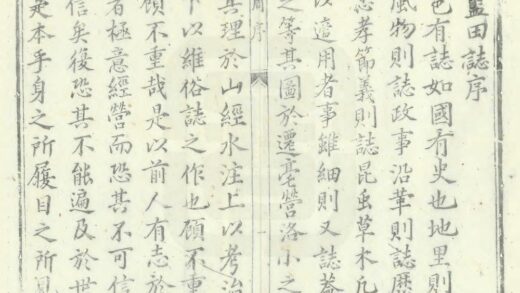 藍田誌序
邑有誌如國有史也地里則
風物則誌政事沿革則誌歷
忠孝節義則誌昆虫草木凡
以適用者事雖細則又誌蓋
之等其圖於遷亳營洛小之
序
其理於山經水注上以考治
下以維俗誌之作也顧不重
顧不重哉是以前人有志於
者極意經營而恐其不可信
信矣後恐其不能遍及於世
是本乎身之所履目之所見